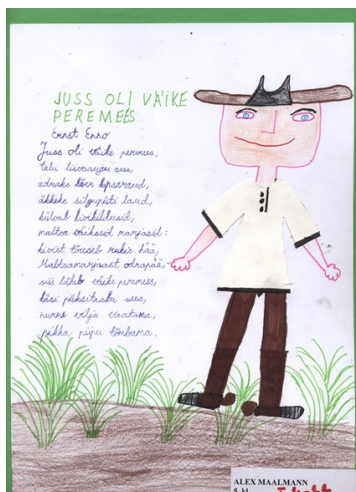 JUSS OLI VÄIKE
PEREMEES
Ernst Enno
Juss oli väike peremees,
talu liivaaugu sees,
adraks kõver kepsraud,
äkkeks silgupüti laud,
külvas kivikillused,
maltsa väiksed marjasid:
kivist tõuseb rukis hää,
Maltsamarjast odrapää,
siis läheb väike peremees,
käsi püksitasku sees,
nurme vilja vaatama,
pikka piipu tõmbama.
ALEX MAALMANN
5. kl